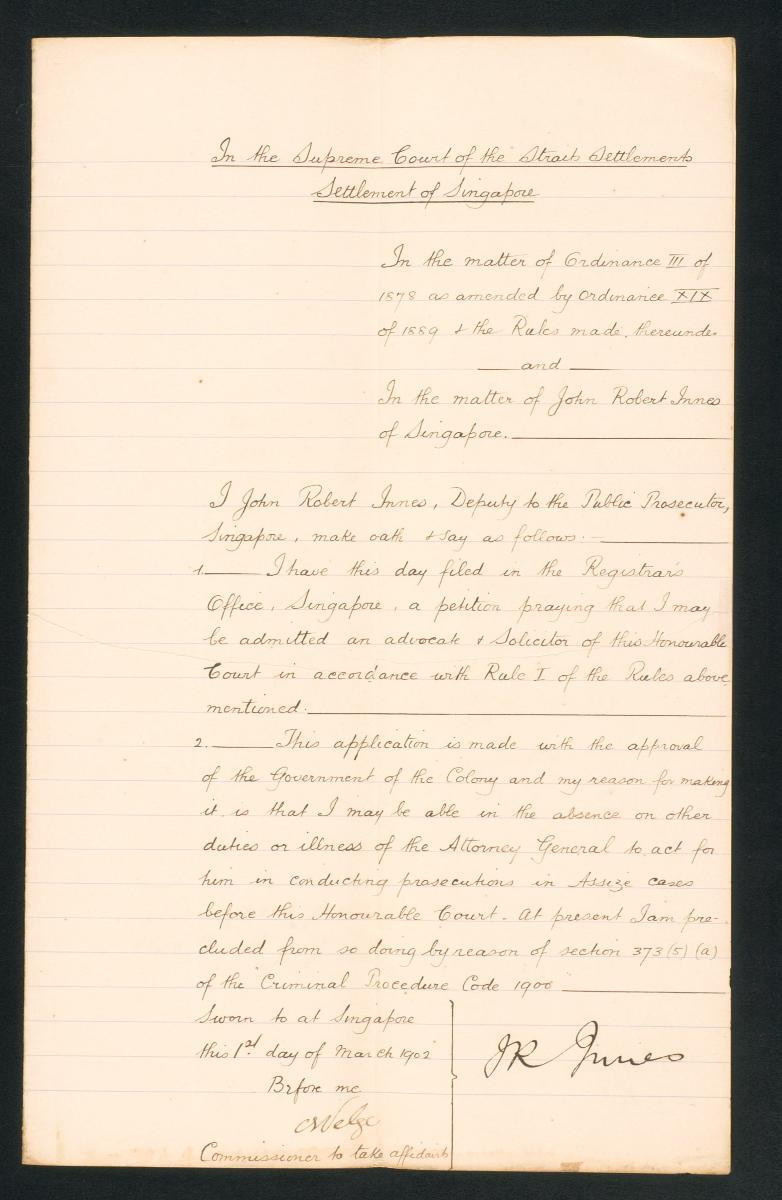 In the Supreme Court of the Straits Settlements
Settlement of Singapore
In the matter of Ordinance III of
1878 as amended by Ordinance XIX
of 1889 & the Rules made thereunder
and
In the matter of John Robert Innes
of Singapore.
I John Robert Innes, Deputy to the Public Prosecutor,
Singapore, make oath & say as follows:-
1. I have this day filed in the Registrar's
Office, Singapore, a petition praying that I may
be admitted an advocate & Solicitor of this Honourable
Court in accordance with Rule I of the Rules above
mentioned.
2. This application is made with the approval
of the Government of the Colony and my reason for making
it is that I may be able in the absence on other
duties or illness of the Attorney General to act for
him in conducting prosecutions in Assize cases
before this Honourable Court. At present I am pre-
cluded from so doing by reason of section 373(5)(a)
of the "Criminal Procedure Code 1900"
Sworn to at Singapore
this 1st day of March 1902
JR Innes
Before me
Commissioner to take affidavits